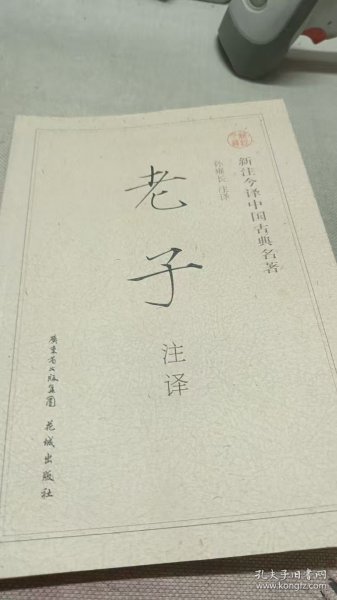 新注今译中国古典名著
孙雍长 注译
老子
注译
广东省出版集团 花城出版社
孔夫子旧书网
www.kongfz.com